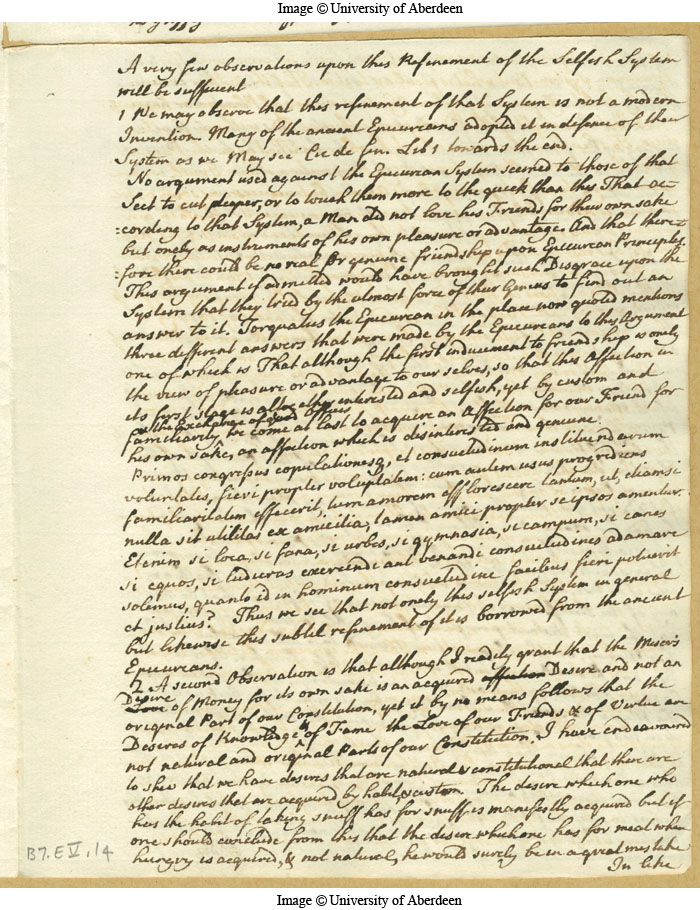 Image © University of Aberdeen
A very few observations upon this Refinement of the Selfish System
will be sufficient
1 We may observe that this refinement of that System is not a modern
Invention. Many of the ancient Epicureans adopted it in defence of their
System as we May see Cic de fin. Lib 1 towards the end.
No argument used against the Epicurean System seemed to those of that
Sect to cut deeper, or to touch them more to the quick than this That ac-
=cording to that System, a Man did not love his Friends for their own sake
but onely as instruments of his own pleasure or advantage. And that there-
=fore there could be no real Or genuine friendship upon Epicurean Principles.
This argument if admitted would have brought such Disgrace upon the
System that they tried by the utmost force of their Genius to find out an
answer to it. Torquatus the Epicurean in the place now quoted mentions
three different answers that were made by the Epicureans to this Argument
one of which is That although the first inducement to friendship is only
the view of pleasure or advantage to our selves, so that this Affection in
its first stage is altogether interested and selfish, yet by custom and
& the Exchange of good Offices
familiarity we come at last to acquire an Affection for our Friend for
his own sake, an affection which is disinterested and genuine.
Primos congressus copulationesq, et consuetudinum instituendarum
voluntates, fieri propter voluptatem: cum autem usus progrediens
familiaritatem effecerit, tum amorem efflorescere tantum, ut, etiamsi
nulla sit utilitas ex amicitia, tamen amici propter se ipsos amentur.
Etenim si loca, si fana, si urbes, si gymnasia, si campum, si canes
si equos, si ludicras exercendi aut venandi consuetudines adamare
solemus, quanto id in hominum consuetudine facilius fieri potuerit
et justius? Thus we see that not onely this selfish System in general
but likewise this subtil refinement of it is borrowed from the ancient
Epicureans.
2 A second Observation is that although I readily grant that the Misers
Desire
Love of Money for its own sake is an acquired affection Desire and not an
original Part of our Constitution, yet it by no means follows that the
Desires of Knowledge & of Fame the Love of our Friends & of Virtue are
not natural and original Parts of our Constitution. I have endeavoured
to shew that we have desires that are natural & constitutional that there are
other desires that are acquired by habit & custom. The desire which one who
has the habit of taking snuff has for snuff is manifestly acquired but if
one should conclude from this that the desire which one has for meat when
hungry is acquired, & not natural, he would surely be in a great mistake
In like
B7.E V.14
Image © University of Aberdeen